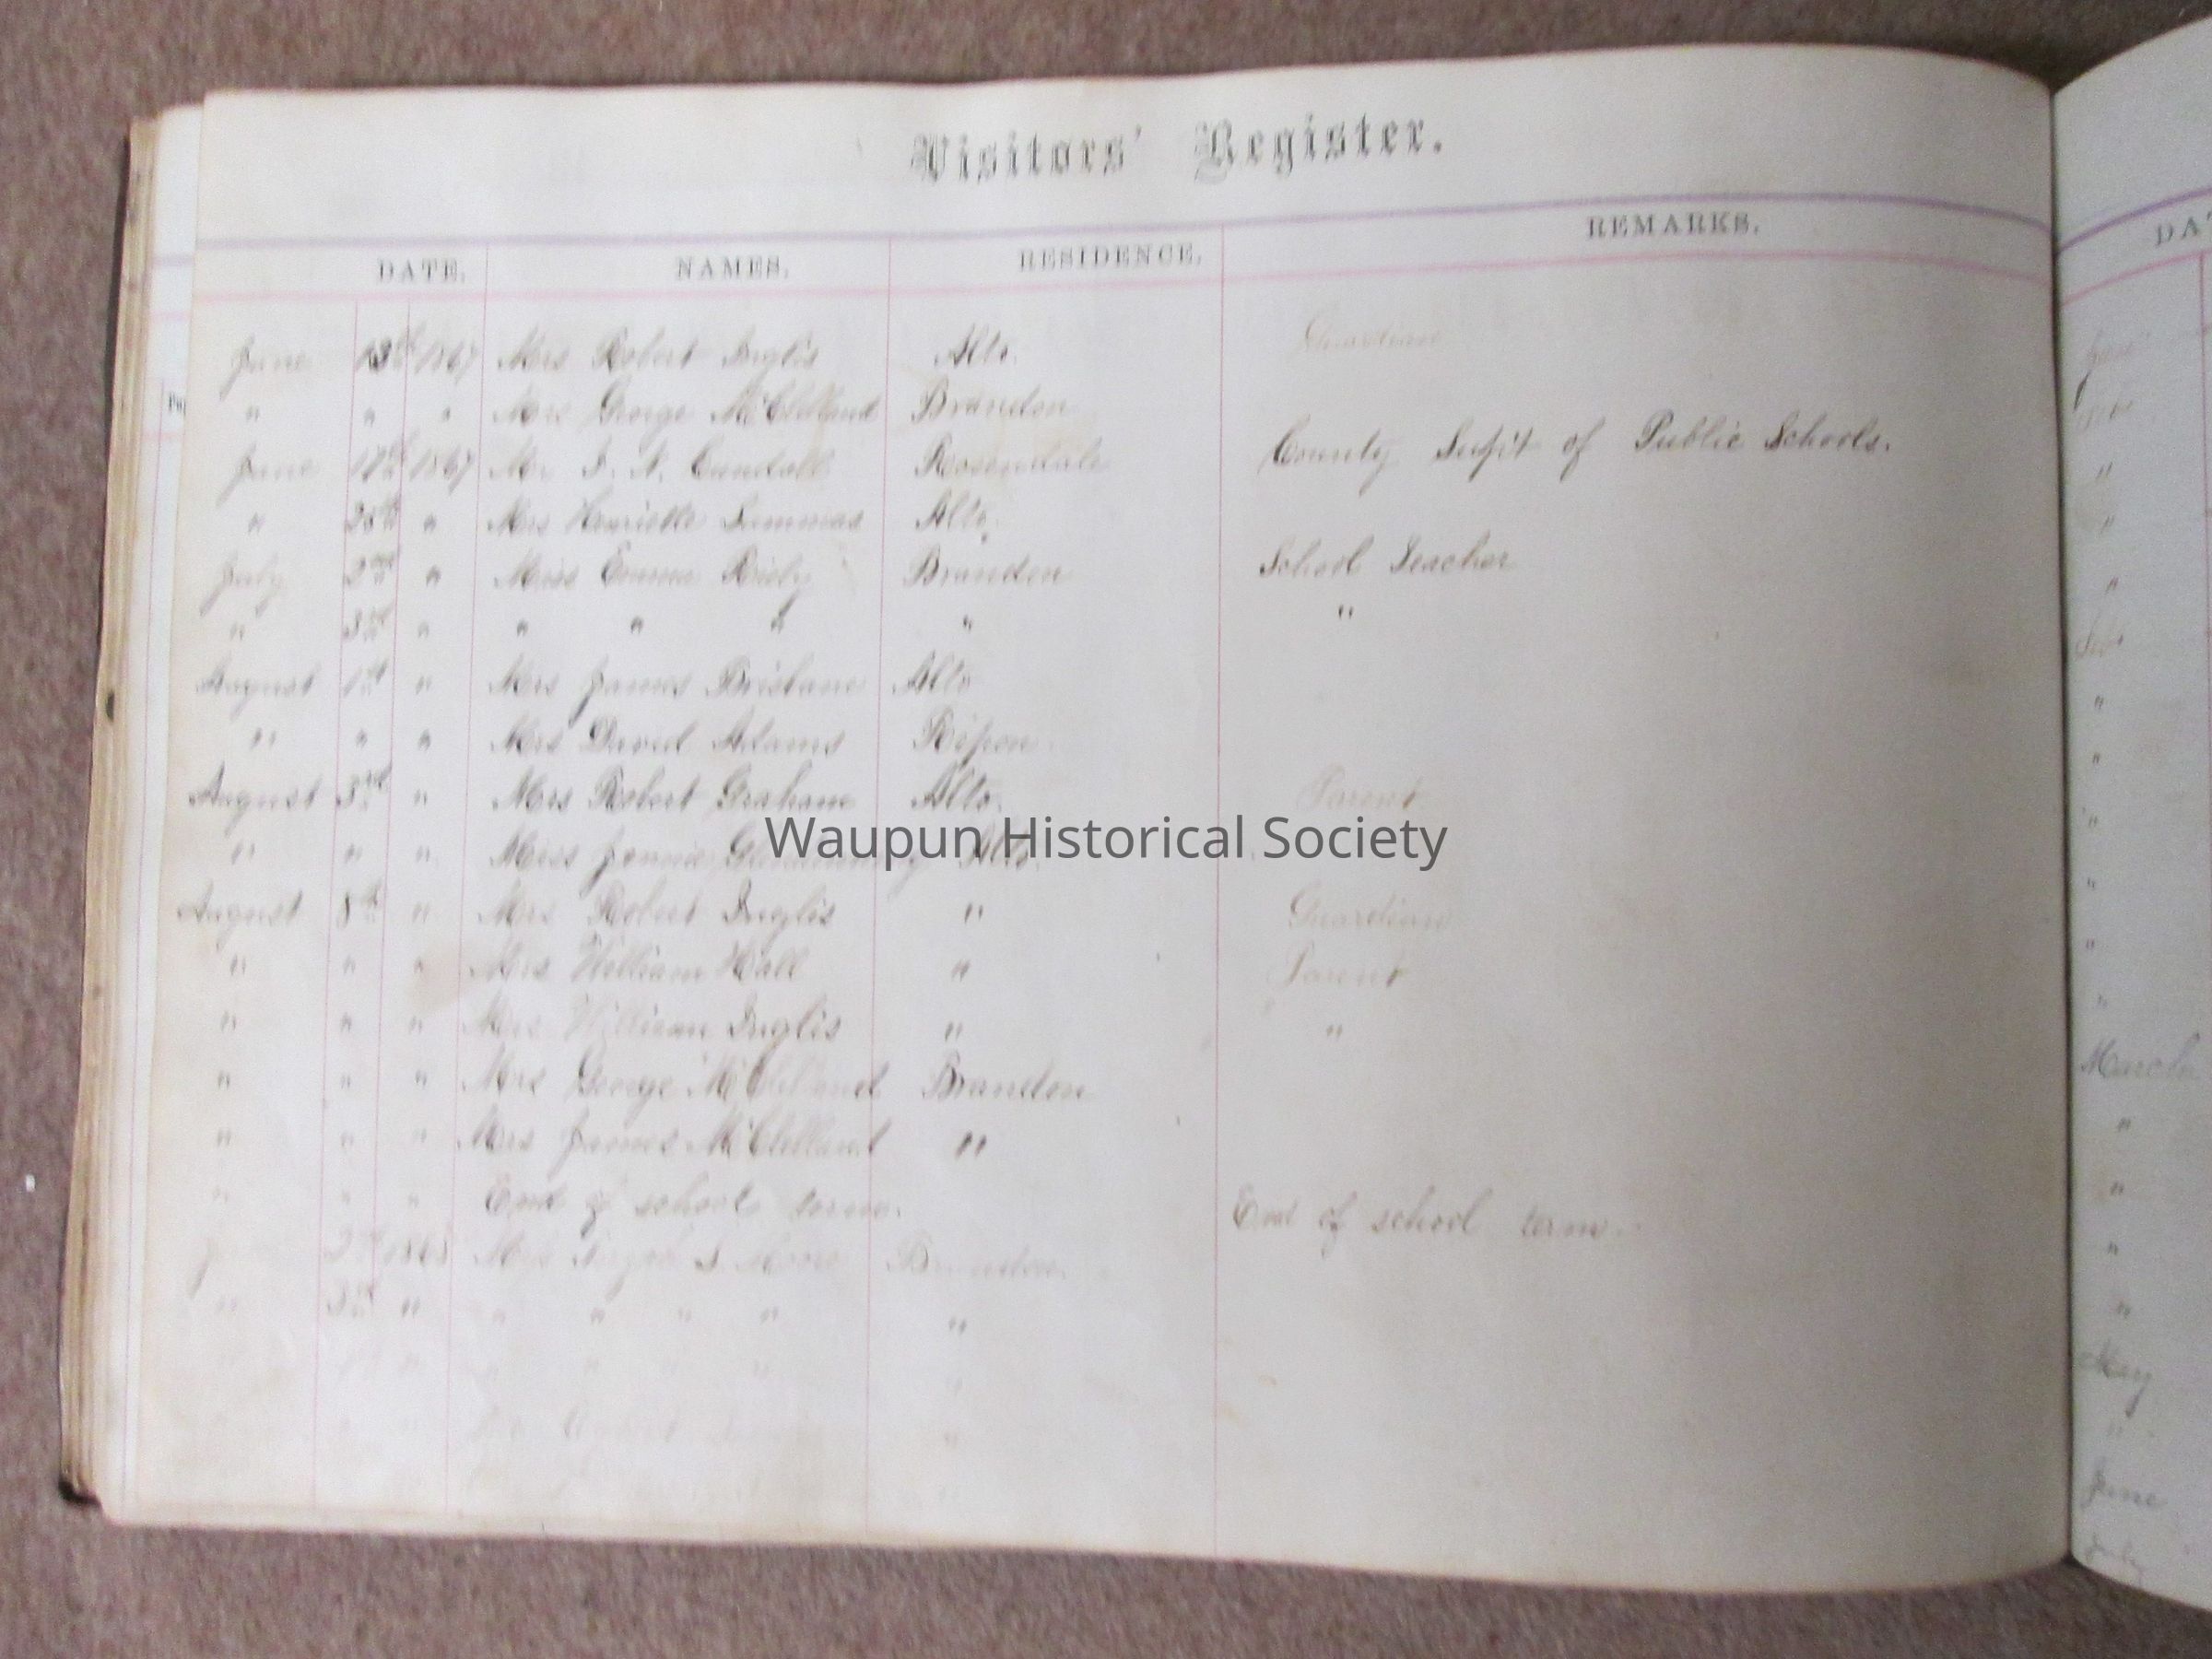 Visitors' Register.
DATE. NAMES. RESIDENCE. REMARKS.
June 13th 1867 Mrs Robert Inglis Alto. Guardian
" " " Mrs George McClelland Brandon
June 17th 1867 Mr I. N. Cundall Rosendale County Supt of Public Schools.
" 26th " Mrs Henriette Alto.
July 2nd " Miss Emma Brandon School Teacher
" 3rd " " " " " "
August 1st " Mrs James Brisbane Alto
" " " Mrs David Adams Ripon
August 3rd " Mrs Robert Graham Alto. Parent
" " " Miss Jennie Alto.
Waupun Historical Society
August 8th " Mrs Robert Inglis " Guardian
" " " Mrs William Hall " Parent
" " " Mrs William Inglis " "
" " " Mrs George McClelland Brandon
" " " Mrs James McClelland "
" " " End of school term. End of school term.
1868 Moore Brandon.
" 3rd " " " " " "
DAT
March
May
June